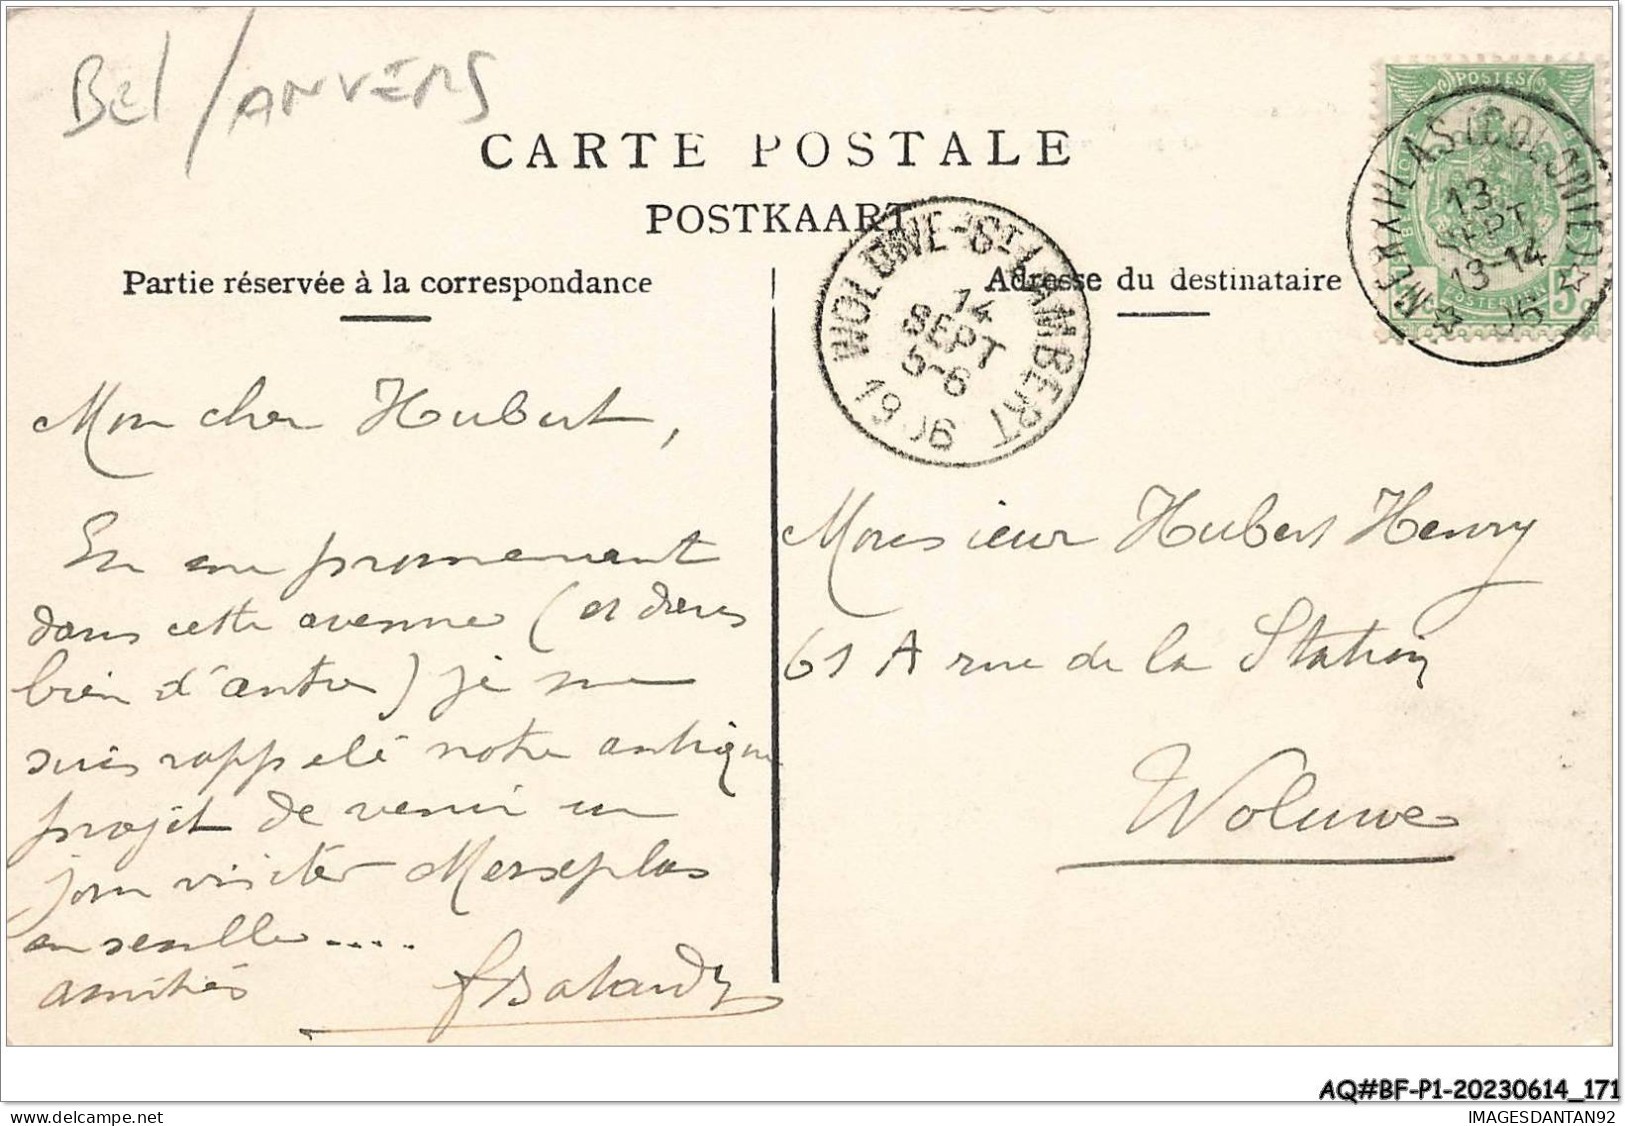 Bel/ANVERS
CARTE POSTALE
POSTKAART
Partie réservée à la correspondance
Adresse du destinataire
POSTES
POSTERIJEN
MERXPLAS (COLONIE)
13
SEPT
13-14
06
WOLUWE-ST-LAMBERT
14
SEPT
5-6
1906
Mon cher Hubert,
En me promenant
dans cette avenue (et dans
bien d'autres) je me
suis rappelé notre antique
projet de venir un
jour visiter Merxplas
ensemble ....
amitiés
Monsieur Hubert Henry
61 A rue de la Station
Woluwe
AQ#BF-P1-20230614_171
IMAGESDANTAN92